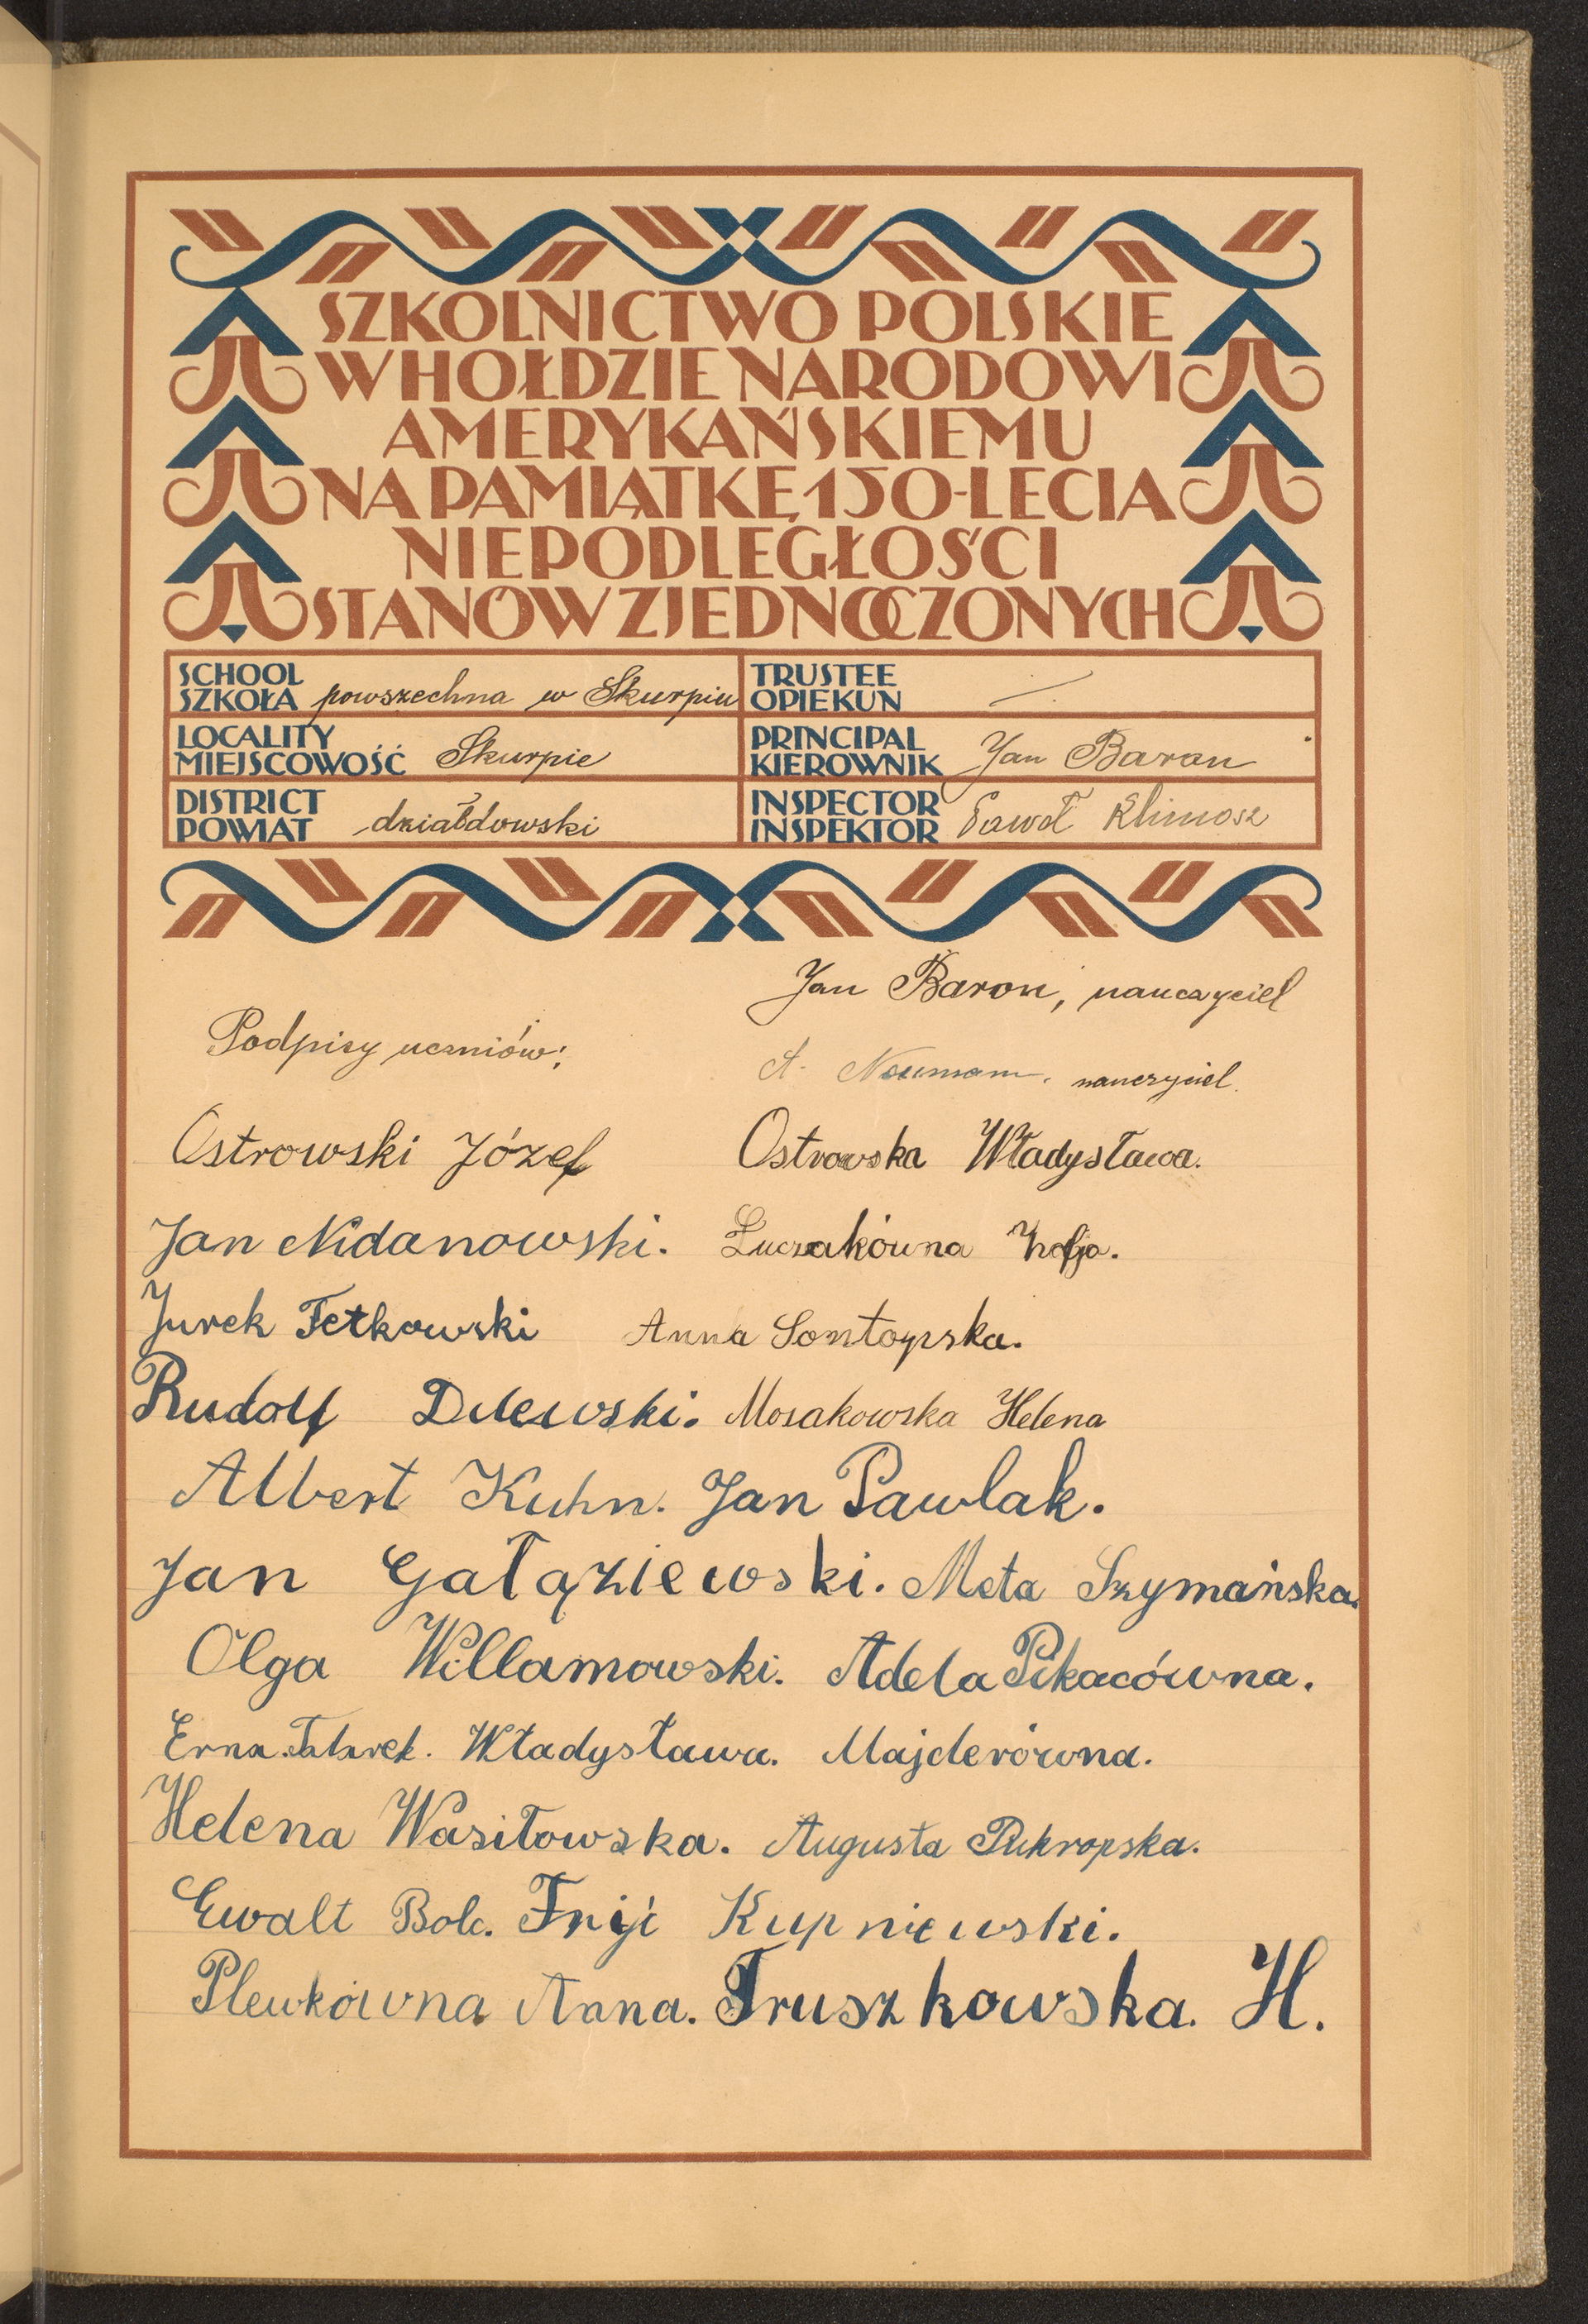 SZKOLNICTWO POLSKIE
W HOŁDZIE NARODOWI
AMERYKAŃSKIEMU
NA PAMIĄTKĘ 150-LECIA
NIEPODLEGŁOŚCI
STANÓW ZJEDNOCZONYCH
SCHOOL
SZKOŁA powszechna w Skurpiu
TRUSTEE
OPIEKUN —
LOCALITY
MIEJSCOWOŚĆ Skurpie
PRINCIPAL
KIEROWNIK Jan Baran
DISTRICT
POWIAT działdowski
INSPECTOR
INSPEKTOR Paweł Klimosz
Jan Baron, nauczyciel
Podpisy uczniów:
A. Neumann. nauczyciel.
Ostrowski Józef Ostrowska Władysława.
Jan Nidanowski. Łuczakówna Zofja.
Jurek Fetkowski Anna Sontopska.
Rudolf Mosakowska Helena
Albert Kuhn. Jan Pawlak.
Jan Gałąziewski. Meta Szymańska.
Olga Willamowski. Adela
Erna Tatarek. Władysława. Majderówna.
Helena Wasiłowska. Augusta Pukropska.
Ewalt Bolc. Kupniewski.
Plewkówna Anna. Truszkowska. H.